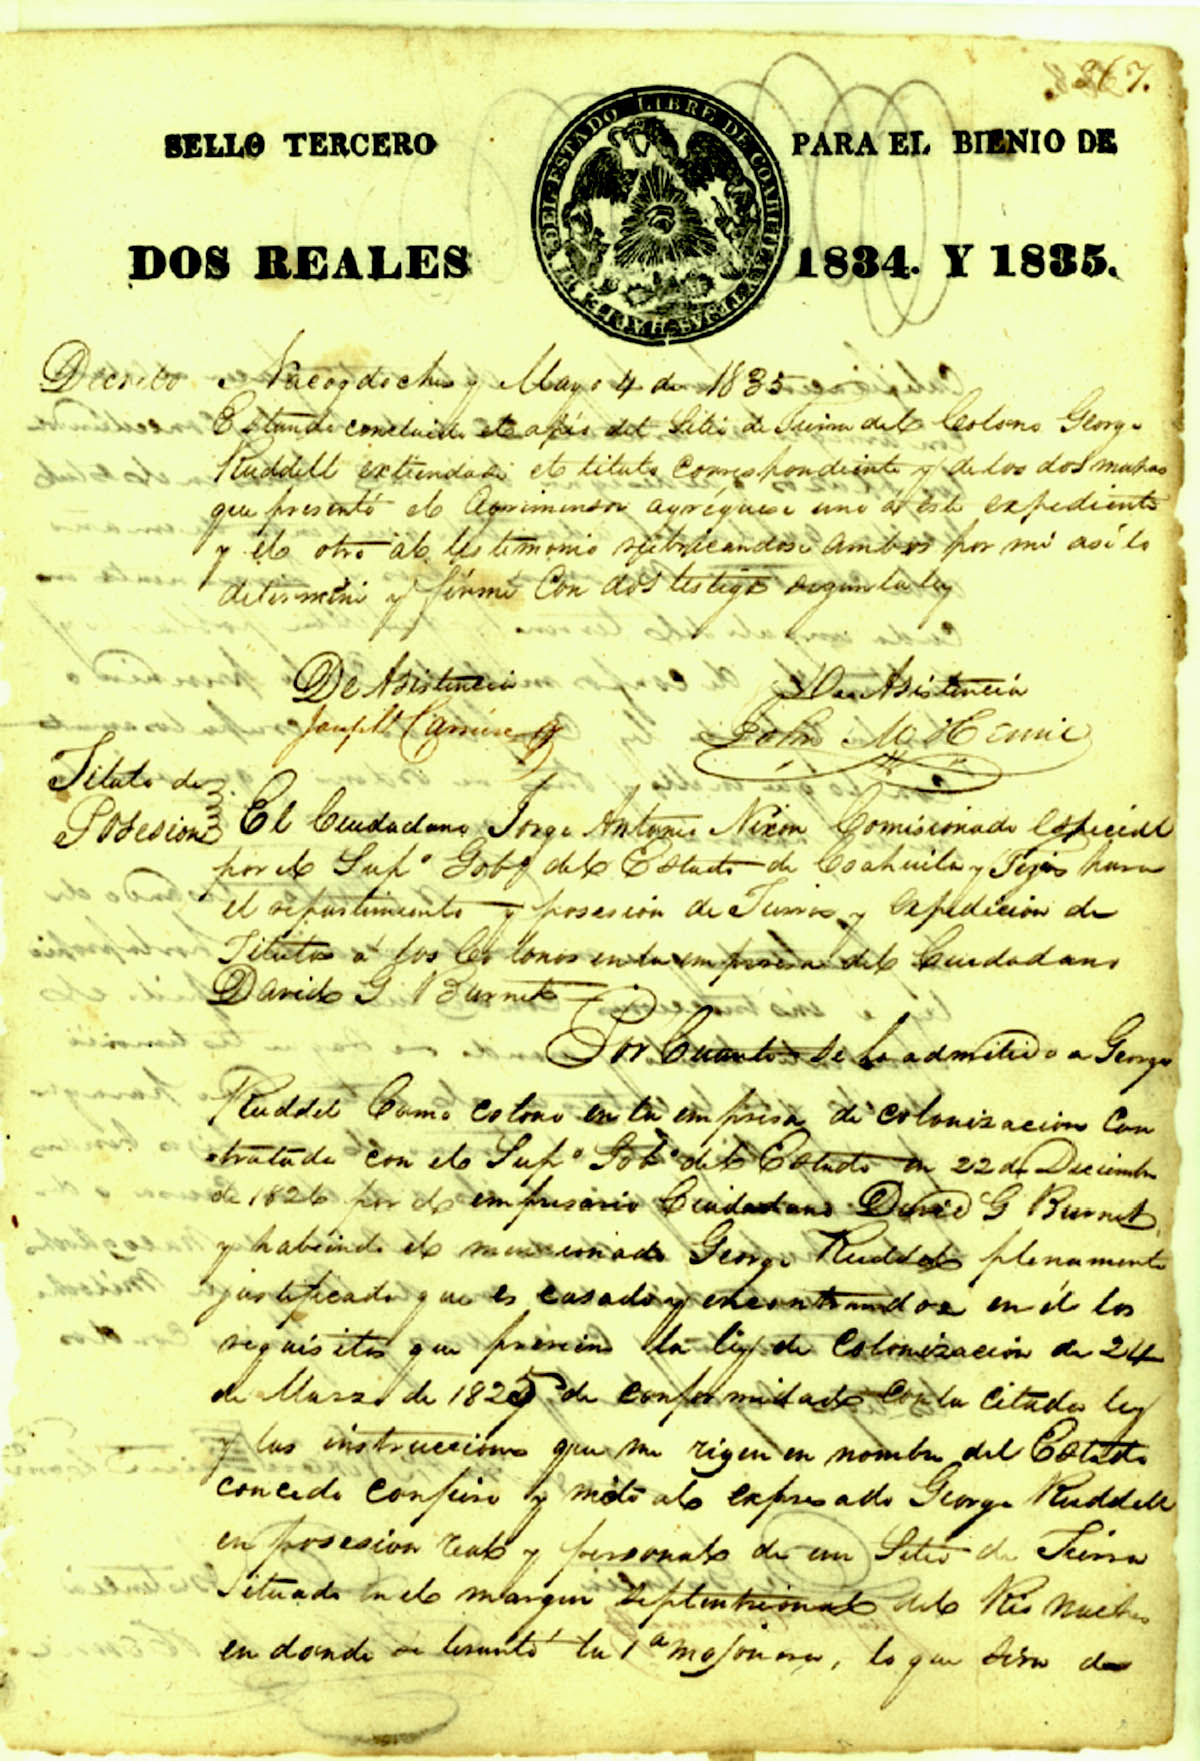 367.
SELLO TERCERO
PARA EL BIENIO DE
DOS REALES
1834. Y 1835.
HACIENDA DEL ESTADO LIBRE DE COAHUILA Y TEJAS
Decreto Nacogdoches y Mayo 4 de 1835
Estando concluido el del Sitio de Tierra del Colono George
Ruddell extiendase el titulo correspondiente y de los dos mapas
que presentó el Agrimensor agréguese uno á este expediente
y el otro al testimonio rubricandose ambos por mi asi lo
determiné y firmé Con dos testigos segun la ley
De Asistencia
De Asistencia
Titulo de
Posesion
El Ciudadano Jorge Antonio Nixon Comisionado Especial
por el Supº Gobº del Estado de Coahuila y Tejas para
el repartimiento y posesion de Tierras y Expedicion de
Titulos a los Colonos en la empresa del Ciudadano
David G Burnet
Por Cuanto Se ha admitido a George
Ruddel Como colono en la empresa de colonizacion Con
tratada con el Supº Gobº del Estado en 22 de Diciembre
de 1826 por el empresario Ciudadano David G Burnet
y habiendo el mencionado George Ruddel plenamente
justificado que es casado y encontrandose en él los
requisitos que previene la ley de Colonizacion de 24
de Marzo de 1825 de conformidad con la citada ley
y las instrucciones que me rigen en nombre del Estado
concedo confiero y meto al expresado George Ruddell
en posesion real y personal de un Sitio de Tierra
Situado en el margen septentrional del Rio Naches
en donde se levantó la 1ª mojonera, lo que sera de